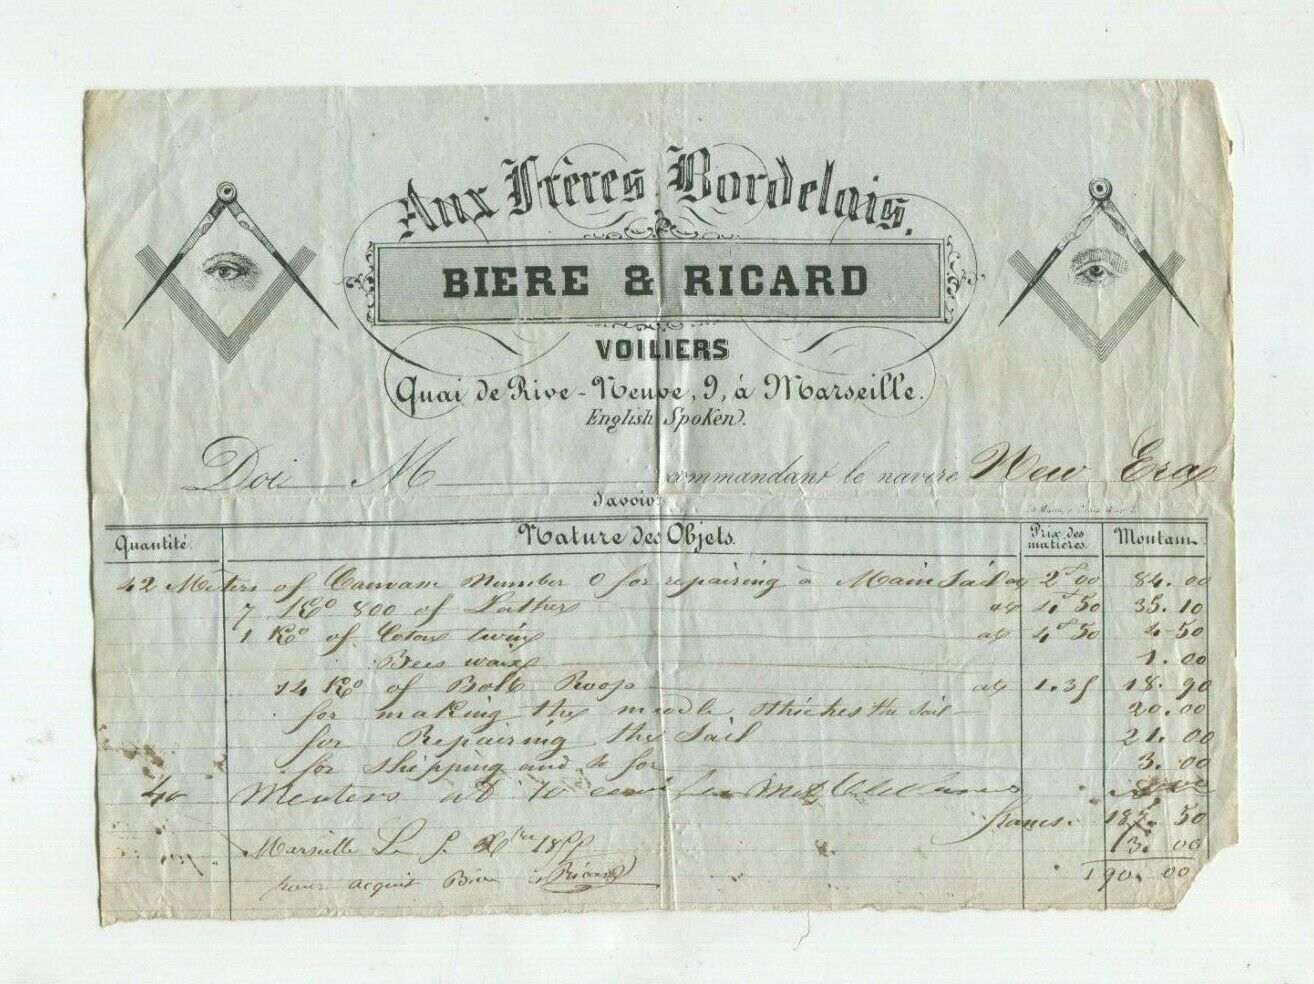 Aux Frères Bordelais.
BIERE & RICARD
VOILIERS
Quai de Rive-Neuve, 9, à Marseille.
English Spoken.
Doit M commandant le navire New Era
Savoir
Quantité Nature des Objets. Prix des matières. Montant
42 Meters of Canvam Number 0 for repairing à Main Sail at 2f00 84.00
7 Ko 800 of at 4f50 35.10
1 Ko of Coton twine at 4f50 4-50
Bees waix 1.00
14 Ko of Bolt Roop at 1.35 18.90
for making the midle stiches the sail 20.00
for Repairing the Sail 21.00
for shipping and so for 3.00
40 Meuters at
francs. 187.50
Marseille Le 3.00
pour acquit Biere & Ricard 190.00